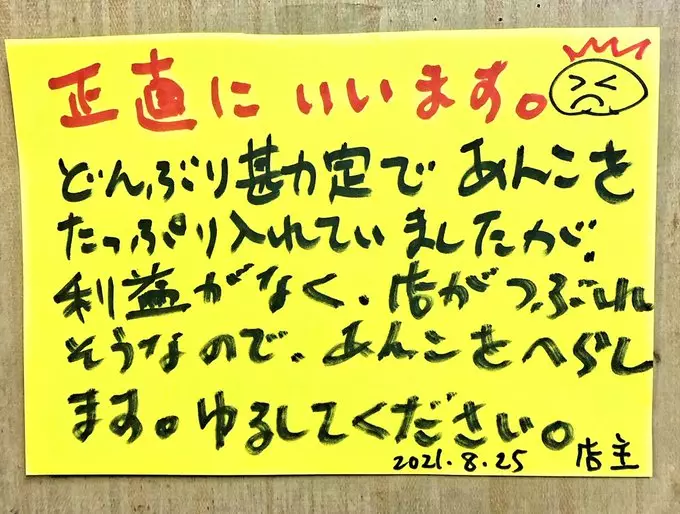 正直にいいます。
どんぶり勘定であんこを
たっぷり入れていましたが、
利益がなく、店がつぶれ
そうなので、あんこをへらし
ます。ゆるしてください。
2021.8.25 店主